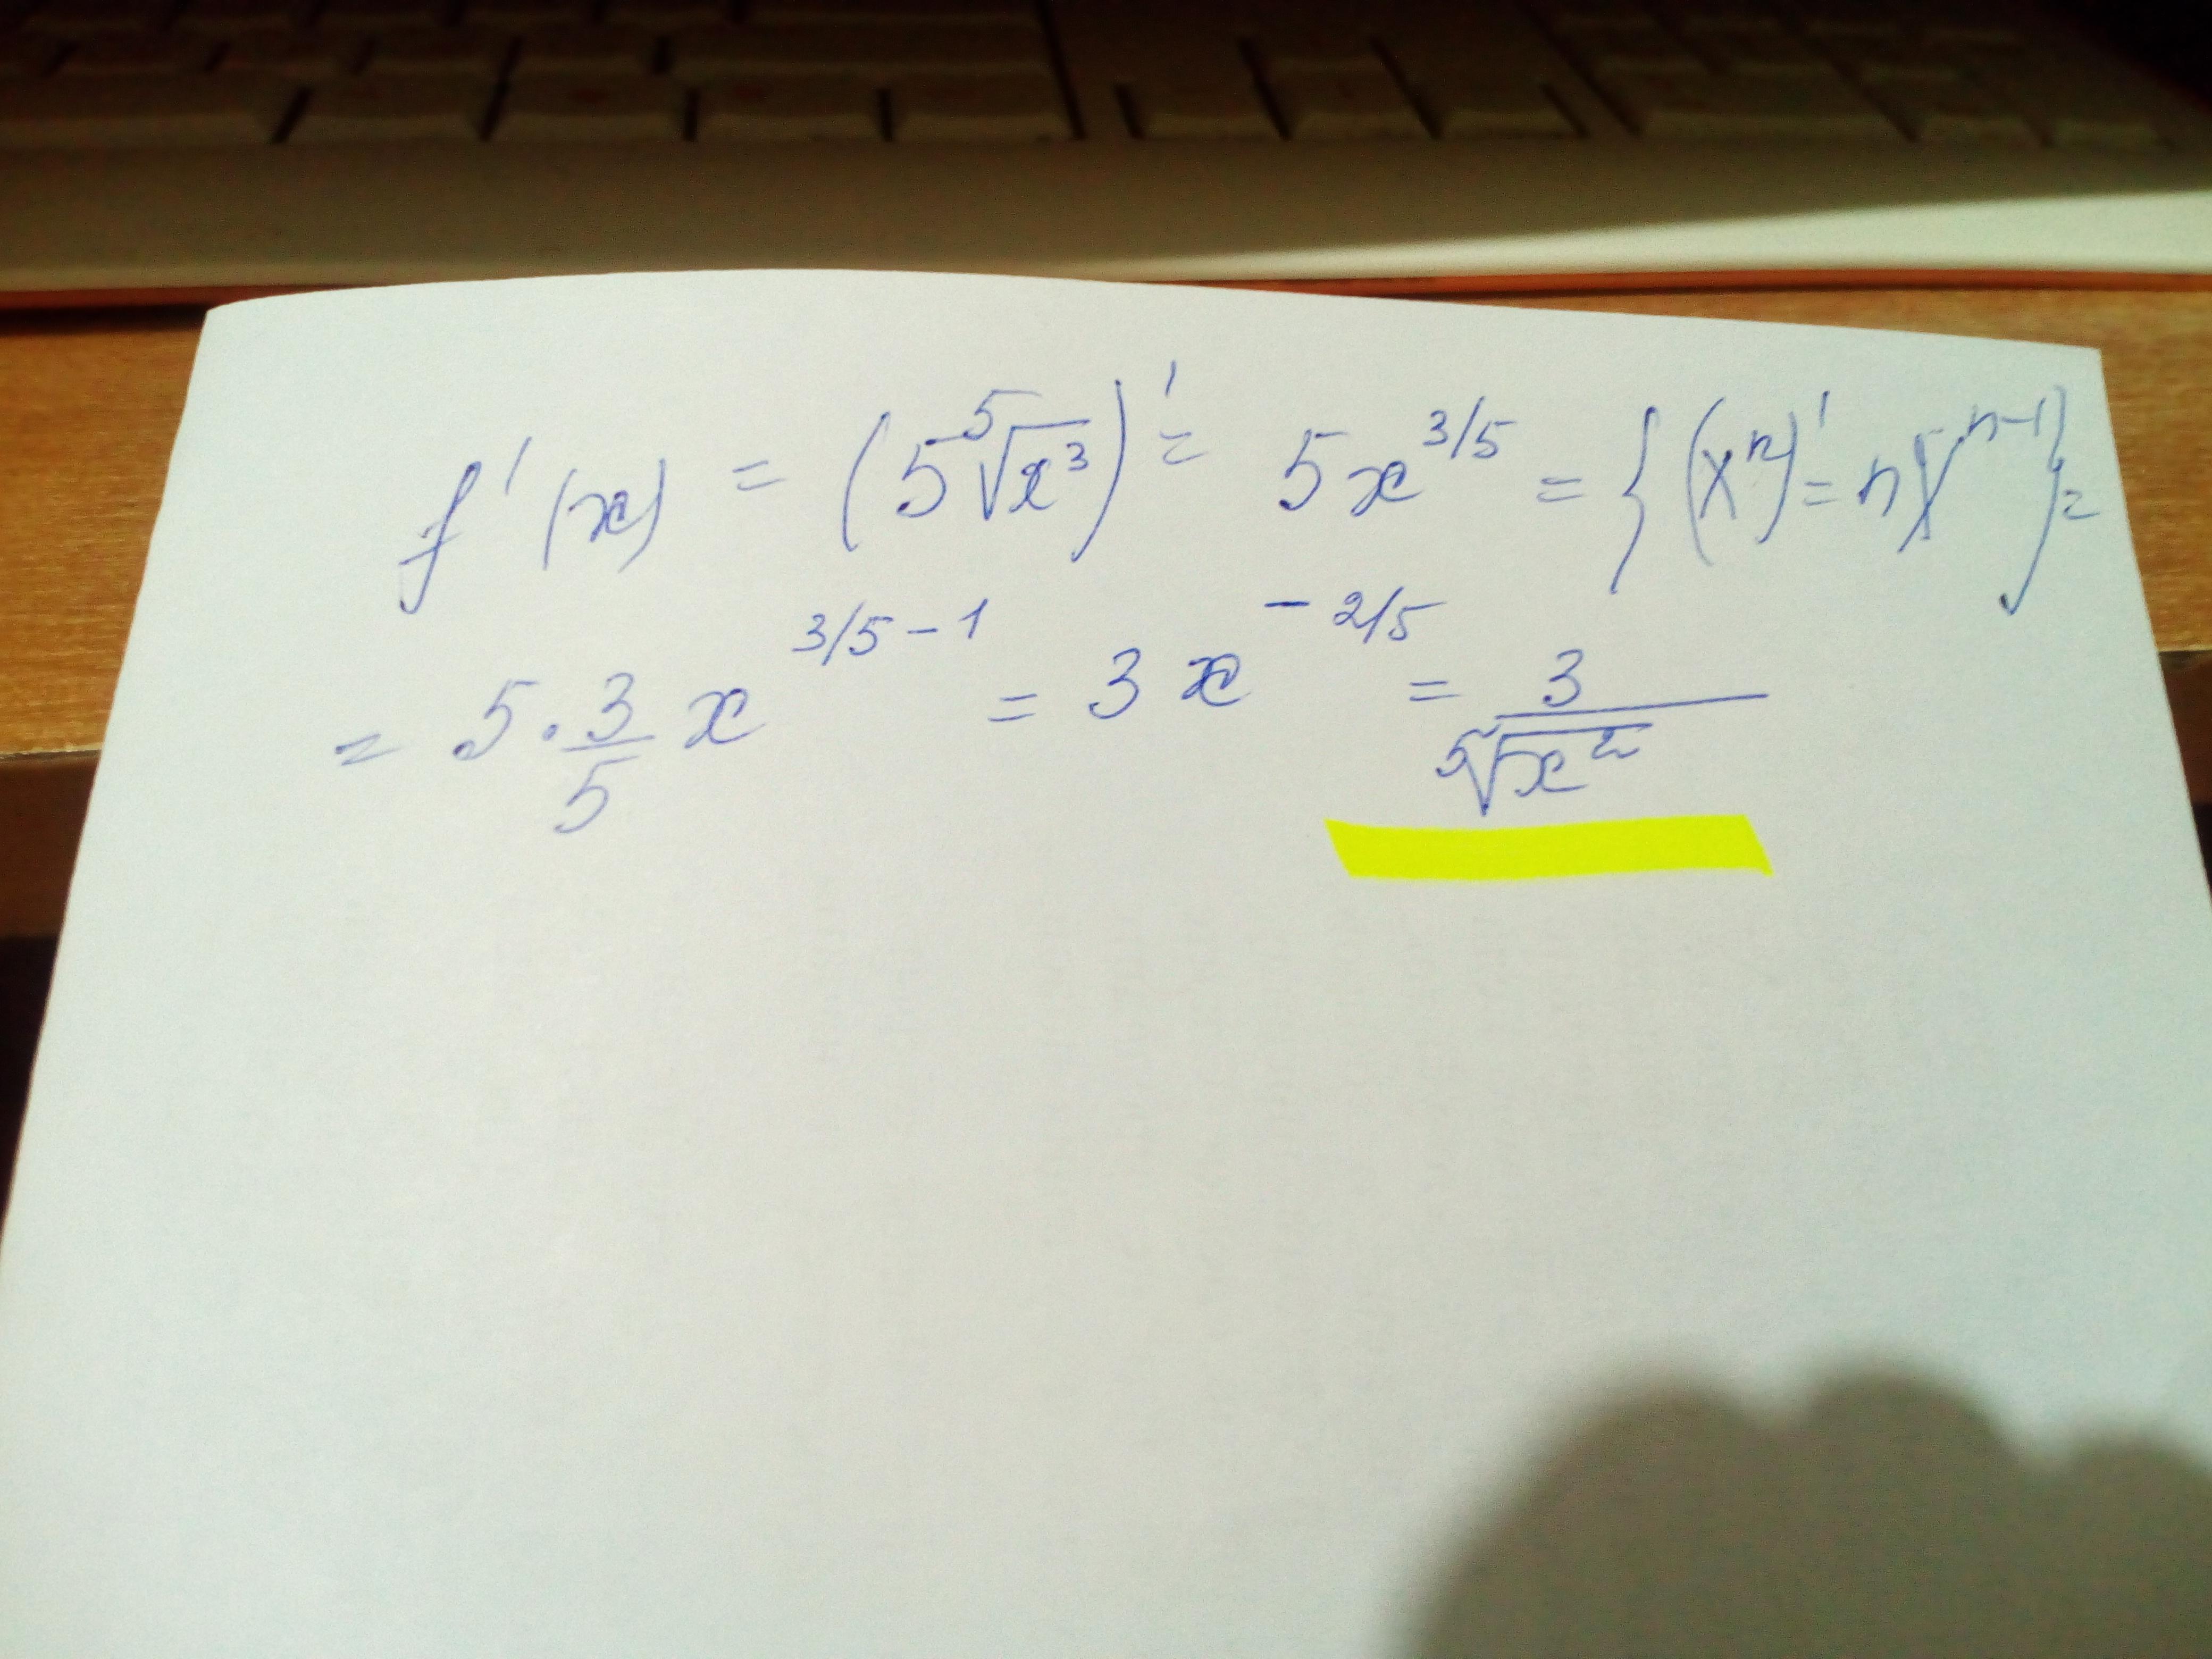 f'(x) = (5⁵√x³)' = 5x^3/5 = {(xⁿ)' = nx^n-1} =
= 5 · 3/5 x^3/5-1 = 3x^-2/5 = 3/⁵√x²